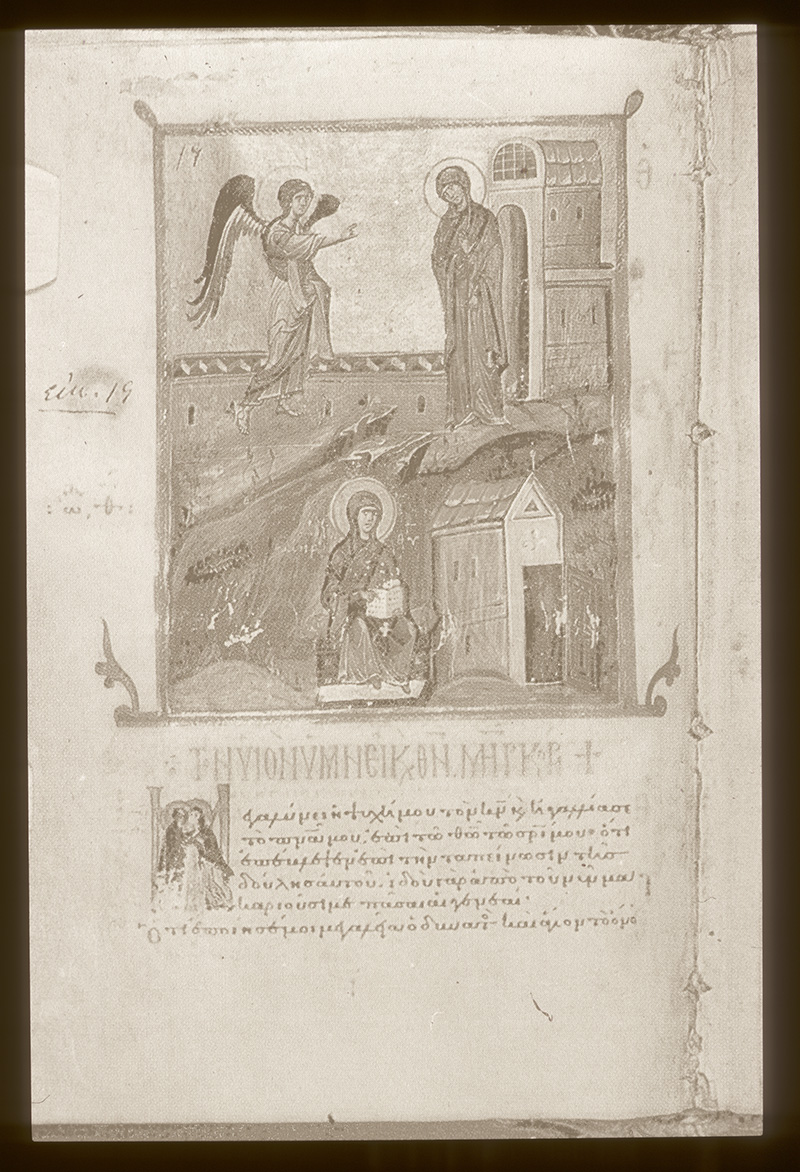 19
εἰκ. 19
ΘΥ
Μεγαλύνει ἡ ψυχή μου τὸν κν κ ἠγαλλίασε
τὸ πνα μου, ἐπὶ τῶ θῶ τῶ σρι μου· ὅτι
ἐπέβλεψεν ἐπὶ τὴν ταπείνωσιν τῆς
δούλης αὐτοῦ. ἰδοὺ γὰρ ἀπὸ τοῦ νῦν μα
καριοῦσί με πᾶσαι αἱ γενεαί·
Ὅτι ἐποίησέ μοι μεγαλεῖα ὁ δυνατ καὶ ἅγιον τὸ ὄνο